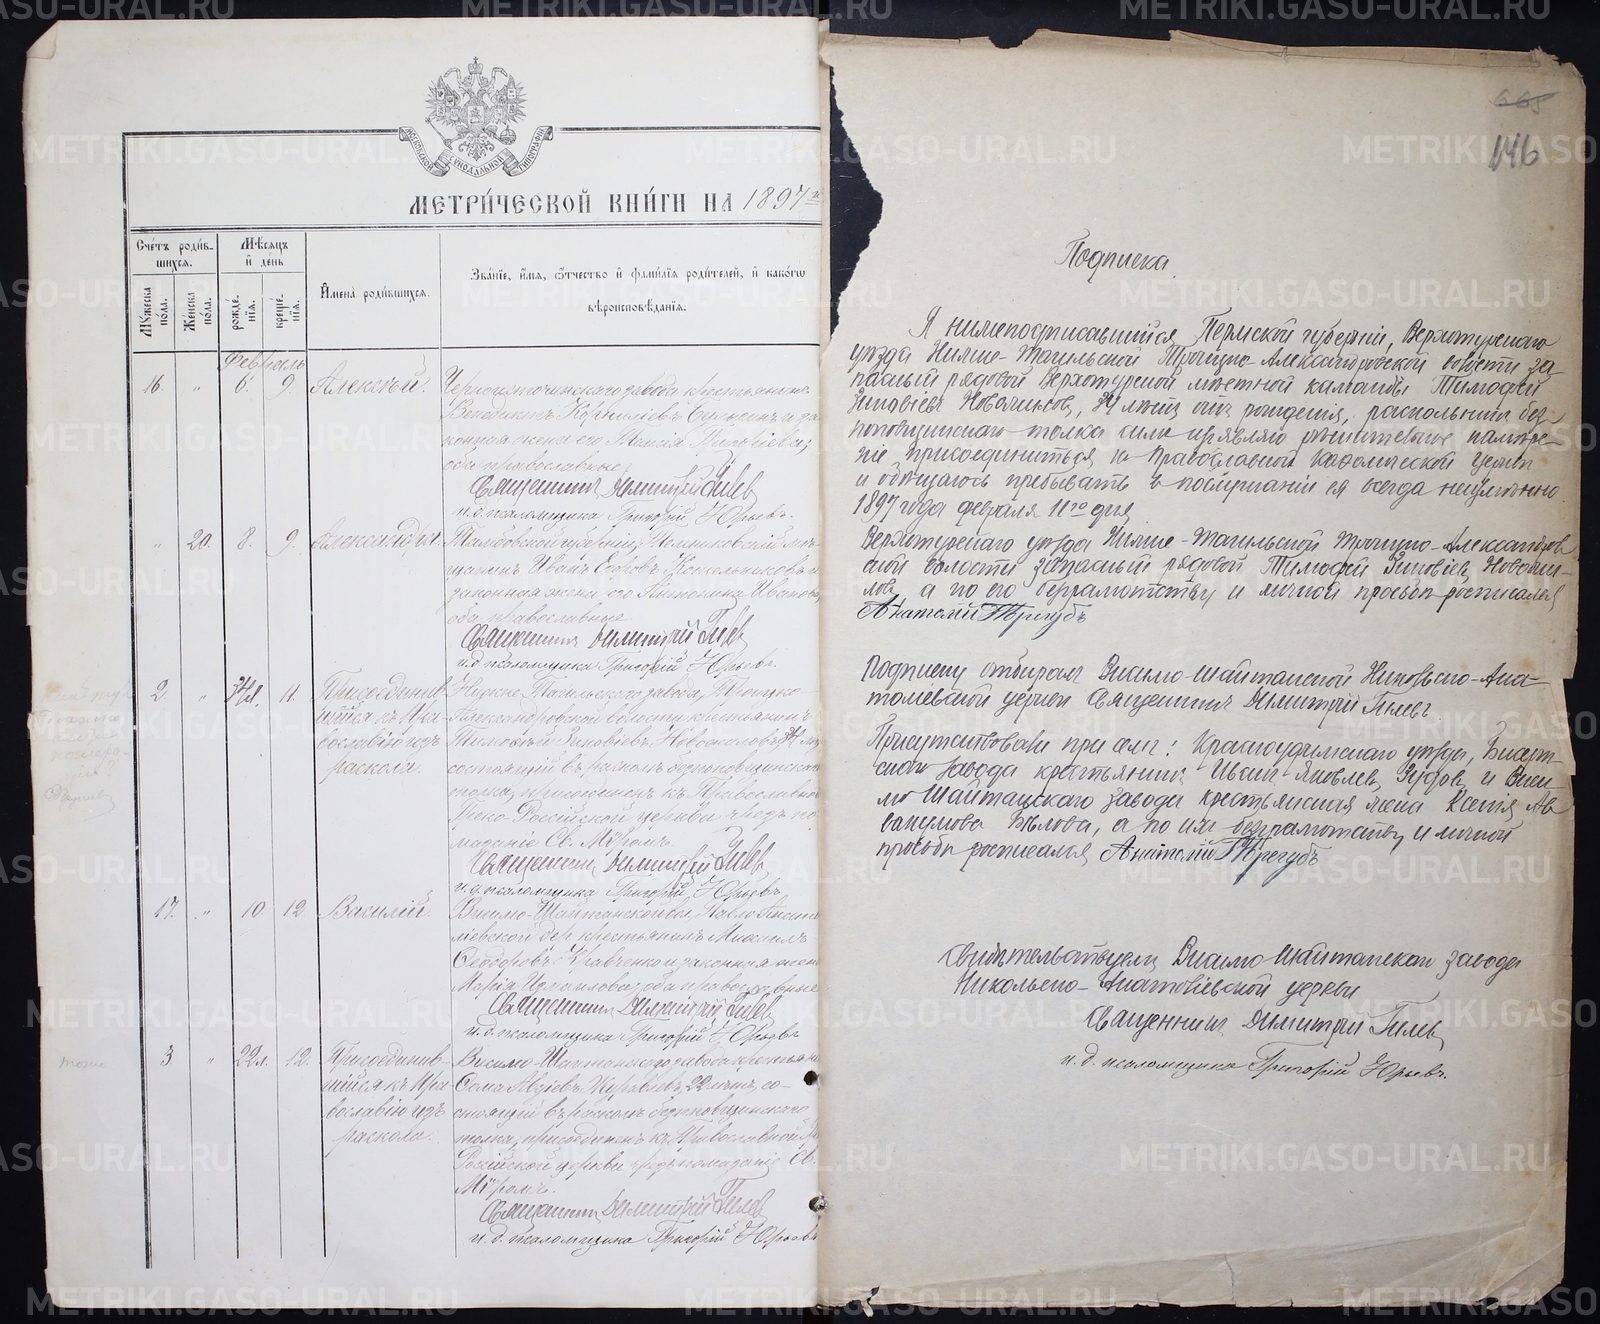 МОСКОВСКОЙ СИНОДАЛЬНОЙ ТИПОГРАФІИ
МЕТРИ́ЧЕСКОЙ КНИ́ГИ НА 1897 го
Сче́тъ роди́в-
шихся.
Мѣ́сяцъ
и҆ де́нь
Му́жеска
по́ла.
Же́нска
по́ла.
рожде́-
нїя.
креще́-
нїя.
И҆мена̀ роди́вшихся.
Зва́нїе, и҆́мя, ѻ҆́тчество и҆ фами́лїя роди́телей, и҆ како́гѡ
вѣроисповѣ́данїя.
Февраль
16. " 6. 9. Алексѣй. Черноисточинскаго завода крестьянинъ
законная жена его
оба православные
Священникъ Димитрій Гилевъ
и. д. псаломщика Григорій Юрьевъ.
" 20. 8. 9. Александра. Тамбовской губерніи, мѣ-
щанинъ Иванъ Котельниковъ и
законная жена его Антонина Иванова,
оба православные
Священникъ Димитрій Гилевъ
и. д. псаломщика Григорій Юрьевъ.
2 " 34 л. 11. Присоединив- Нижне-Тагильскаго завода, Троицко-
шійся къ Пра- Александровской волости крестьянинъ
вославію изъ Тимофей Зиновіевъ Новожиловъ 34 лѣ
раскола. состоящій въ расколѣ безпоповщинскаго
толка, присоединенъ къ Православно
Греко-Россійской церкви чрезъ по
мазаніе Св. Мѵромъ.
Священникъ Димитрій Гилевъ
и. д. псаломщика Григорій Юрьевъ
17. " 10. 12 Василій. Висимо-Шайтанской вол. Павло-Анато
ліевской дер. крестьянинъ Михаилъ
Ѳеодоровъ Кравченко и законная жена
Марія Измаилова, оба православные
Священникъ Димитрій Гилевъ
и. д. псаломщика Григорій Юрьевъ
тоже 3 " 22 л. 12. Присоединив- Висимо-Шайтанскаго завода крестьянинъ
шійся къ Пра- 22 лѣтъ, со-
вославію изъ стоящій въ расколѣ безпоповщинскаго
раскола. толка, присоединенъ къ Православной
Россійской церкви чрезъ помазаніе Св.
Мѵромъ.
Священникъ Димитрій Гилевъ
и. д. псаломщика Григорій Юрьевъ
665
146
Подписка.
Я нижеподписавшійся, Пермской губерніи, Верхотурскаго
уѣзда Нижне-Тагильской Троицко-Александровской волости за-
пасный рядовой Верхотурской мѣстной команды Тимофей
Зиновіевъ Новожиловъ, 34 лѣтъ отъ рожденія, раскольникъ без-
поповщинскаго толка симъ изъявляю рѣшительное намѣре-
ніе присоединиться къ Православной Каѳолической церкви
и обѣщаюсь пребывать въ послушаніи ея всегда неизмѣнно.
1897 года февраля 11го дня
Верхотурскаго уѣзда Нижне-Тагильской Троицко-Александров-
ской волости запасный рядовой Тимофей Зиновіевъ Новожи-
ловъ, а по его безграмотству и личной просьбѣ росписался
Анатолій Трегубъ
Подписку отбиралъ Висимо-Шайтанской Никольско-Ана-
толіевской церкви Священникъ Димитрій Гилевъ.
Присутствовали при семъ: Красноуфимскаго уѣзда, Бисерт-
скаго завода крестьянинъ Иванъ Яковлевъ и Виси-
мо Шайтанскаго завода крестьянская жена Ксенія Ав-
вакумова Бѣлова, а по ихъ безграмотству и личной
просьбѣ росписался Анатолій Трегубъ
Свидѣтельствуемъ Висимо-Шайтанскаго завода
Никольско-Анатоліевской церкви
Священникъ Димитрій Гилевъ
и. д. псаломщика Григорій Юрьевъ.
METRIKI.GASO-URAL.RU